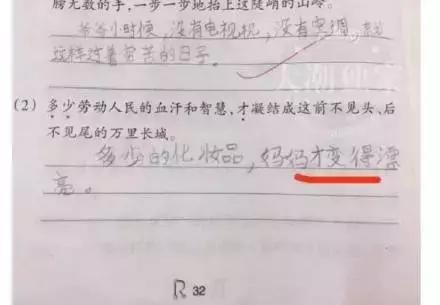 膀无数的手,一步一步地抬上这陡峭的山岭。
爷爷小时候,没有电视机,没有空调,就
这样过着穷苦的日子。
(2) 多少劳动人民的血汗和智慧,才凝结成这前不见头、后
不见尾的万里长城。
多少的化妆品,妈妈才变得漂
亮。
R 32